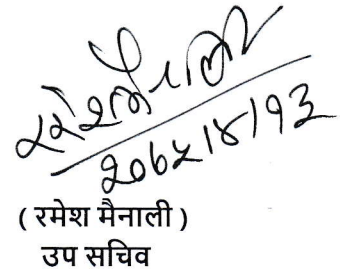 रमेश मैनाली
२०७५।४।१३
( रमेश मैनाली )
उप सचिव